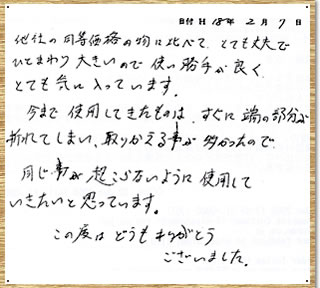 日付 H 18年 2月 7日
他社の同等価格の物に比べて、とても丈夫で
ひとまわり大きいので使い勝手が良く、
とても気に入っています。
今まで使用してきたものは、すぐに端の部分が
折れてしまい、取りかえる事が多かったので
同じ事が起こらないように使用して
いきたいと思っています。
この度はどうもありがとう
ございました。